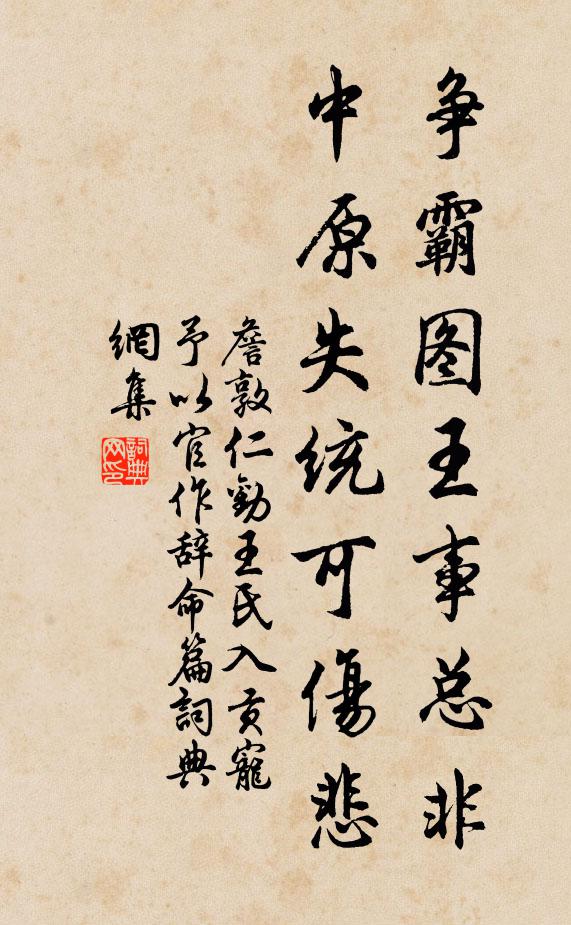 争霸图王事总非
中原失统可傷悲
詹敦仁勸王氏入贡寵
予以官作辞命篇詞典
網集
詞典網印